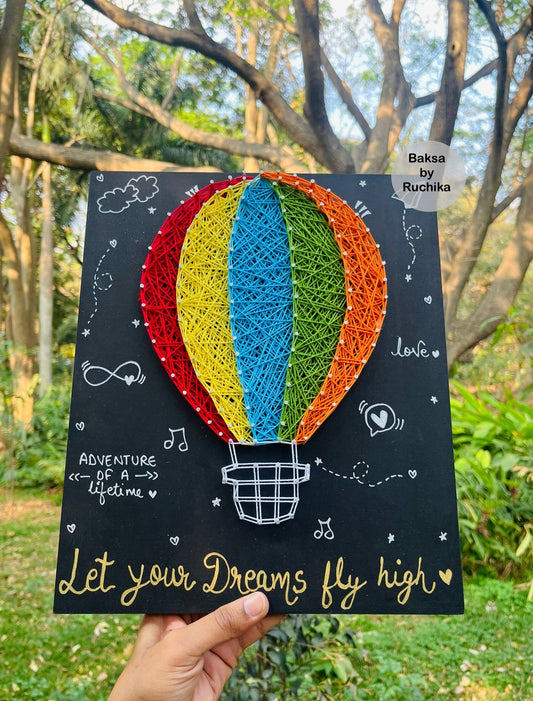 Baksa
by
Ruchika
love
ADVENTURE
OF A
lifetime
Let your Dreams fly high